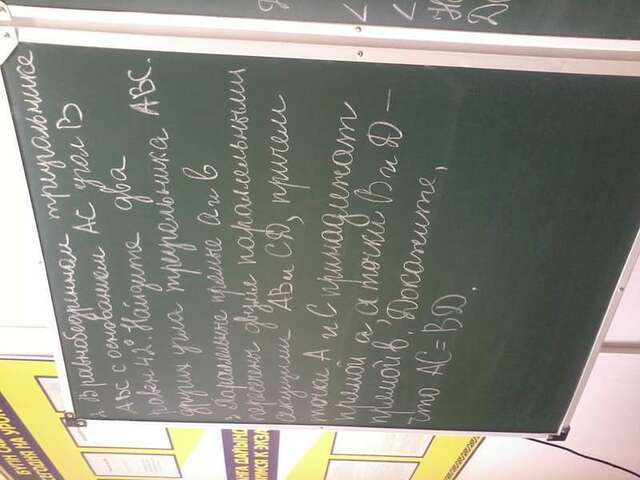 1. В равнобедренном треугольнике
ABC с основанием AC угол B
равен 42°. Найдите два
других угла треугольника ABC.
2. Параллельные прямые a и b
пересечены двумя параллельными
секущими AB и CD, причем
точки A и C принадлежат
прямой a, а точки B и D –
прямой b. Докажите,
что AC = BD.